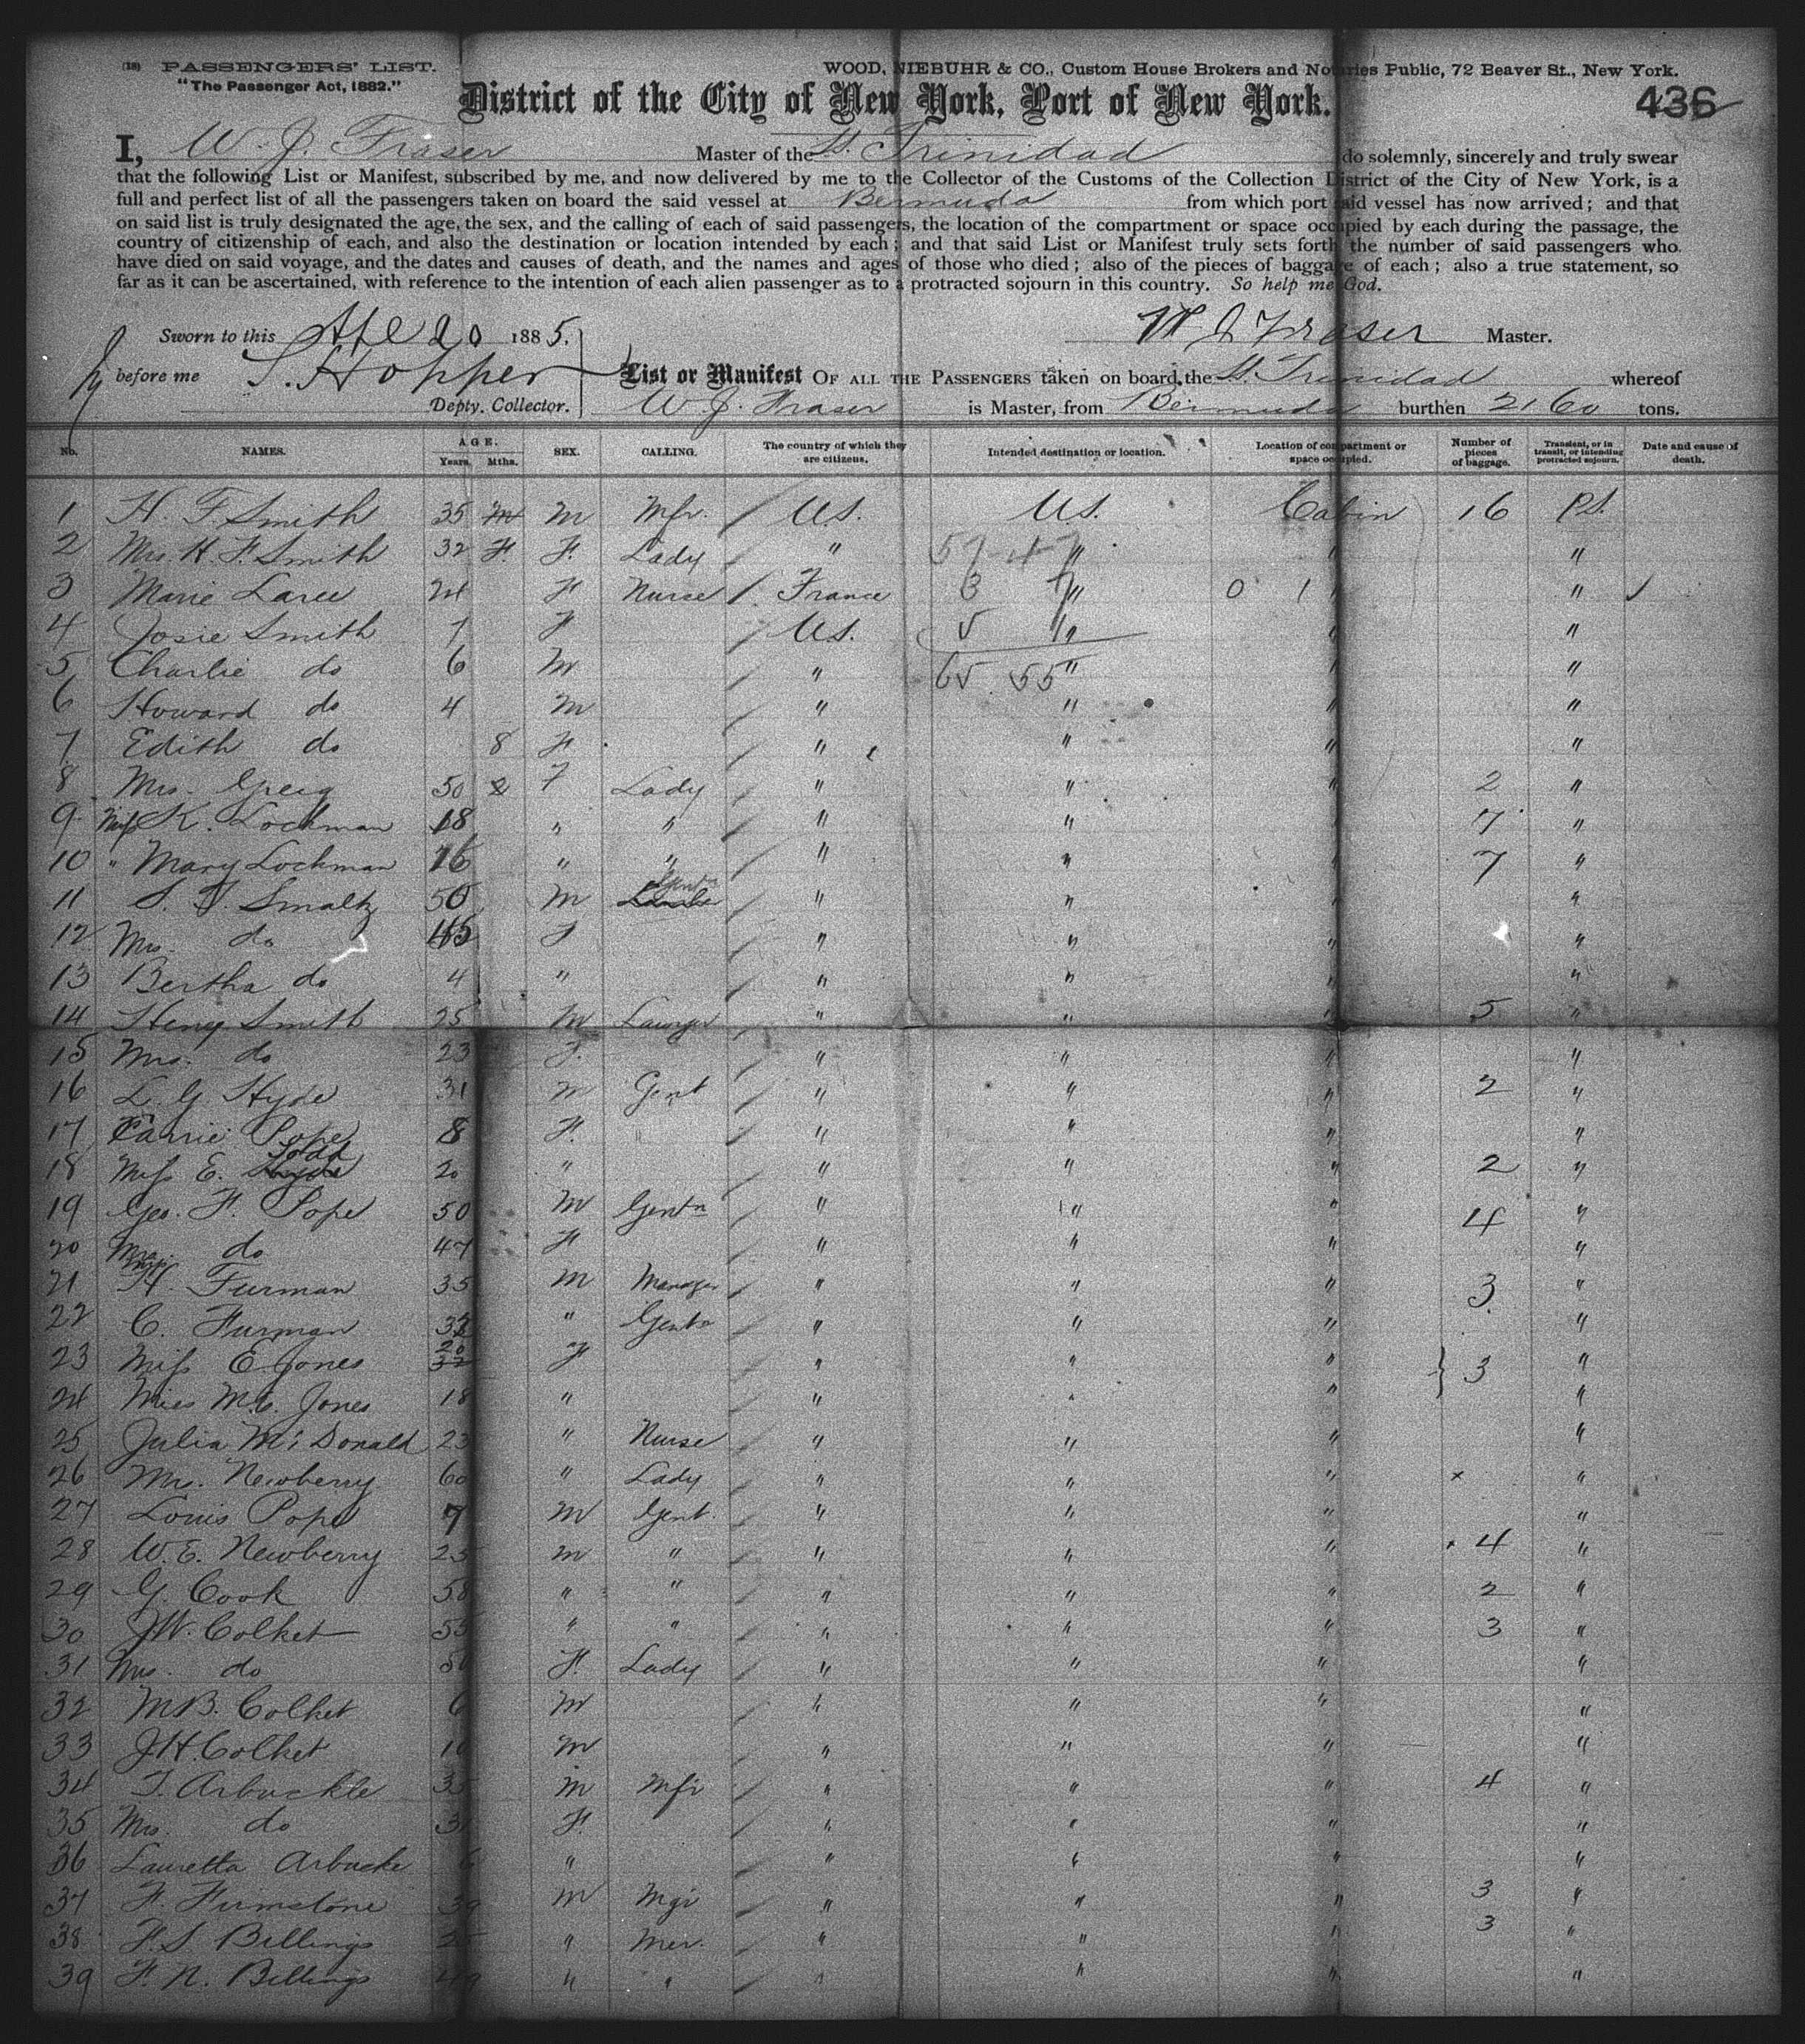 (18) PASSENGERS' LIST.
"The Passenger Act, 1882."
WOOD, NIEBUHR & CO., Custom House Brokers and Notaries Public, 72 Beaver St., New York.
District of the City of New York, Port of New York.
436
I, W. J. Fraser Master of the St. Trinidad do solemnly, sincerely and truly swear
that the following List or Manifest, subscribed by me, and now delivered by me to the Collector of the Customs of the Collection District of the City of New York, is a
full and perfect list of all the passengers taken on board the said vessel at Bermuda from which port said vessel has now arrived; and that
on said list is truly designated the age, the sex, and the calling of each of said passengers, the location of the compartment or space occupied by each during the passage, the
country of citizenship of each, and also the destination or location intended by each; and that said List or Manifest truly sets forth the number of said passengers who
have died on said voyage, and the dates and causes of death, and the names and ages of those who died; also of the pieces of baggage of each; also a true statement, so
far as it can be ascertained, with reference to the intention of each alien passenger as to a protracted sojourn in this country. So help me God.
Sworn to this Apl 20 1885.
W. J. Fraser Master.
before me S. Hopper
Depty. Collector.
List or Manifest OF ALL THE PASSENGERS taken on board the St. Trinidad whereof
W. J. Fraser is Master, from Bermuda burthen 2160 tons.
No. NAMES. AGE. Years. Mths. SEX. CALLING. The country of which they are citizens. Intended destination or location. Location of compartment or space occupied. Number of pieces of baggage. Transient, or in transit, or intending protracted sojourn. Date and cause of death.
1 H. F. Smith 35 M M Mfr. U.S. U.S. Cabin 16 P.S.
2 Mrs. H. F. Smith 32 F. F. Lady " 57 47 " " "
3 Marie Laree 24 F Nurse France 3 7 " 0 1 "
4 Josie Smith 7 F U.S. 5 1 " " "
5 Charlie do 6 M " 65 55 " " "
6 Howard do 4 M " " " "
7 Edith do 8 F " " " "
8 Mrs. Greig 50 F Lady " " " 2 "
9 Miss K. Lockman 18 " " " " " 7 "
10 " Mary Lockman 16 " " " " " 7 "
11 S. F. Smaltz 50 M Gentn " " " "
12 Mrs. do 45 F " " " "
13 Bertha do 4 " " " " "
14 Henry Smith 25 M Lawyer " " " 5 "
15 Mrs. do 23 F. " " " "
16 L. G. Hyde 31 M Gent " " " 2 "
17 Carrie Pope 8 F. " " " "
18 Miss E. Todd 20 " " " " 2 "
19 Geo. F. Pope 50 M Gentn " " " 4 "
20 Mrs. do 47 F " " " "
21 H. Furman 35 M Manager " " " 3 "
22 C. Furman " Gentn " " " "
23 Miss E. Jones 20 F " " " 3 "
24 Miss M. C. Jones 18 " " " " "
25 Julia McDonald 23 " Nurse " " " "
26 Mrs. Newberry 60 " Lady " " " x "
27 Louis Pope 7 M Gent. " " " "
28 W. E. Newberry 25 M " " " " x 4 "
29 G. Cook 58 " " " " " 2 "
30 J W. Colket 55 " " " " " 3 "
31 Mrs. do F. Lady " " " "
32 M B. Colket 6 M " " " "
33 J H. Colket M " " " "
34 T. Arbuckle 35 M Mfr " " " 4 "
35 Mrs. do F. " " " "
36 Lauretta Arbuckle 6 " " " " "
37 F. Firmstone 39 M Mgr " " " 3 "
38 F. S. Billings 25 " Mer. " " " 3 "
39 F. N. Billings " " " " " "